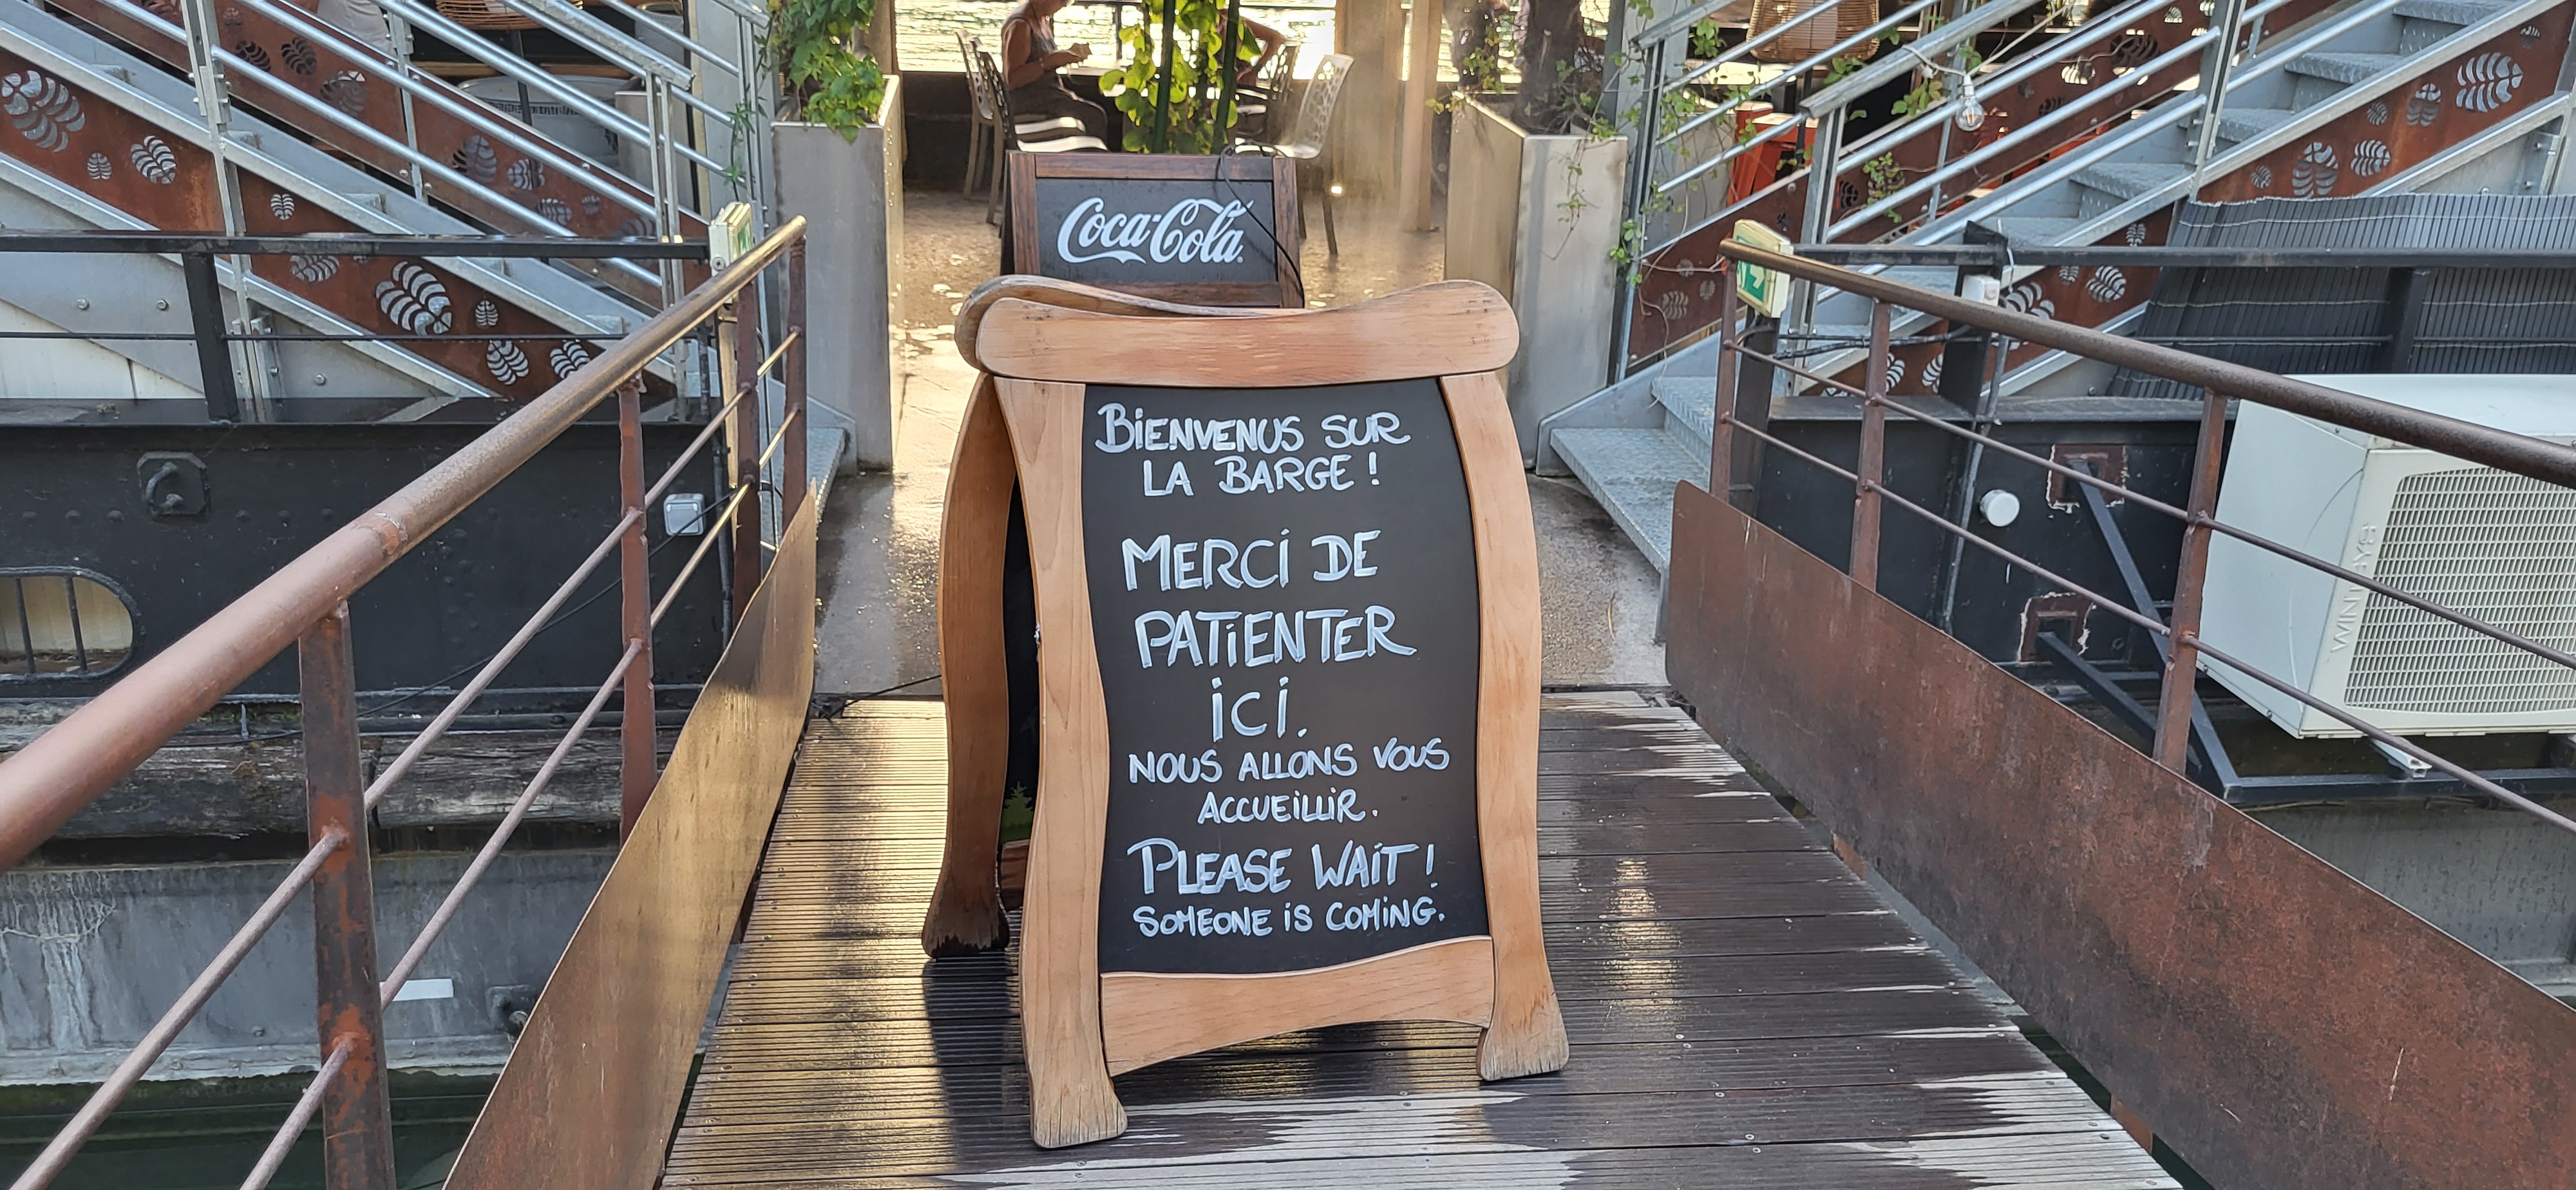 Coca-Cola
BiENVENUS SUR
LA BARGE !
MERCi DE
PATiENTER
iCi.
NOUS ALLONS VOUS
ACCUEiLLiR.
PLEASE WAiT !
SOMEONE iS COMiNG.
WINTSYS